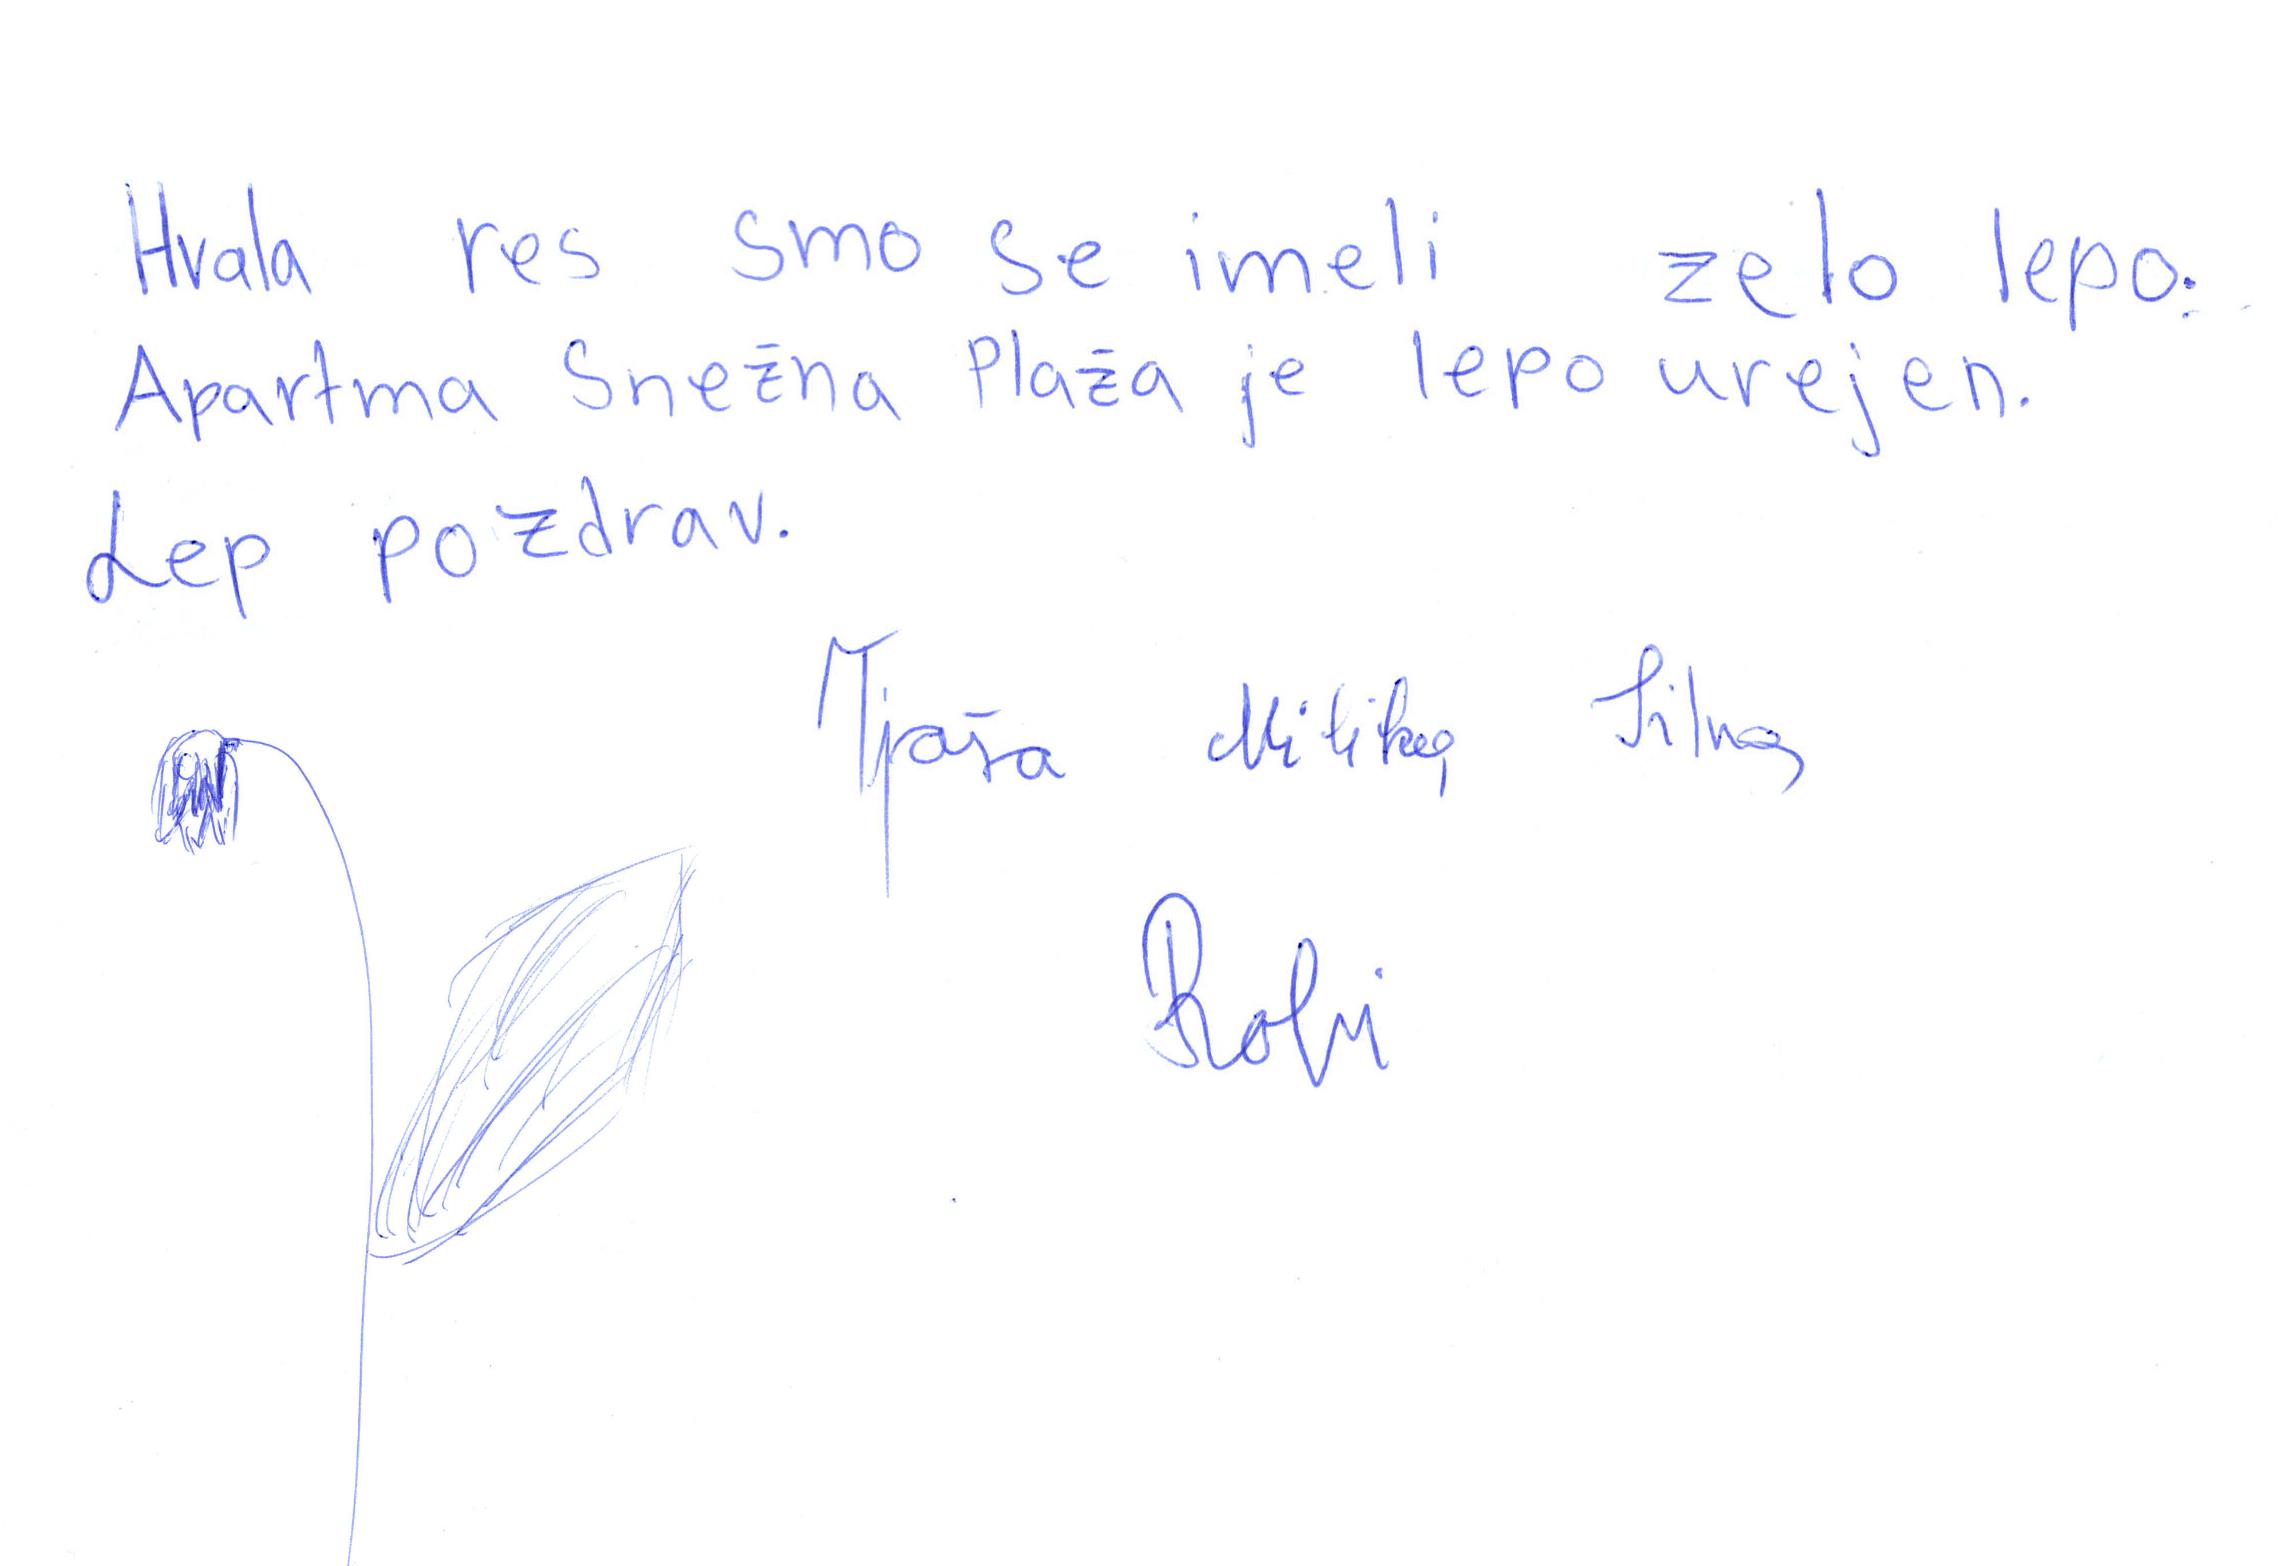 Hvala res smo se imeli zelo lepo.
Apartma Snežna Plaža je lepo urejen.
Lep pozdrav.
Tjaša Milika Silva
Robi